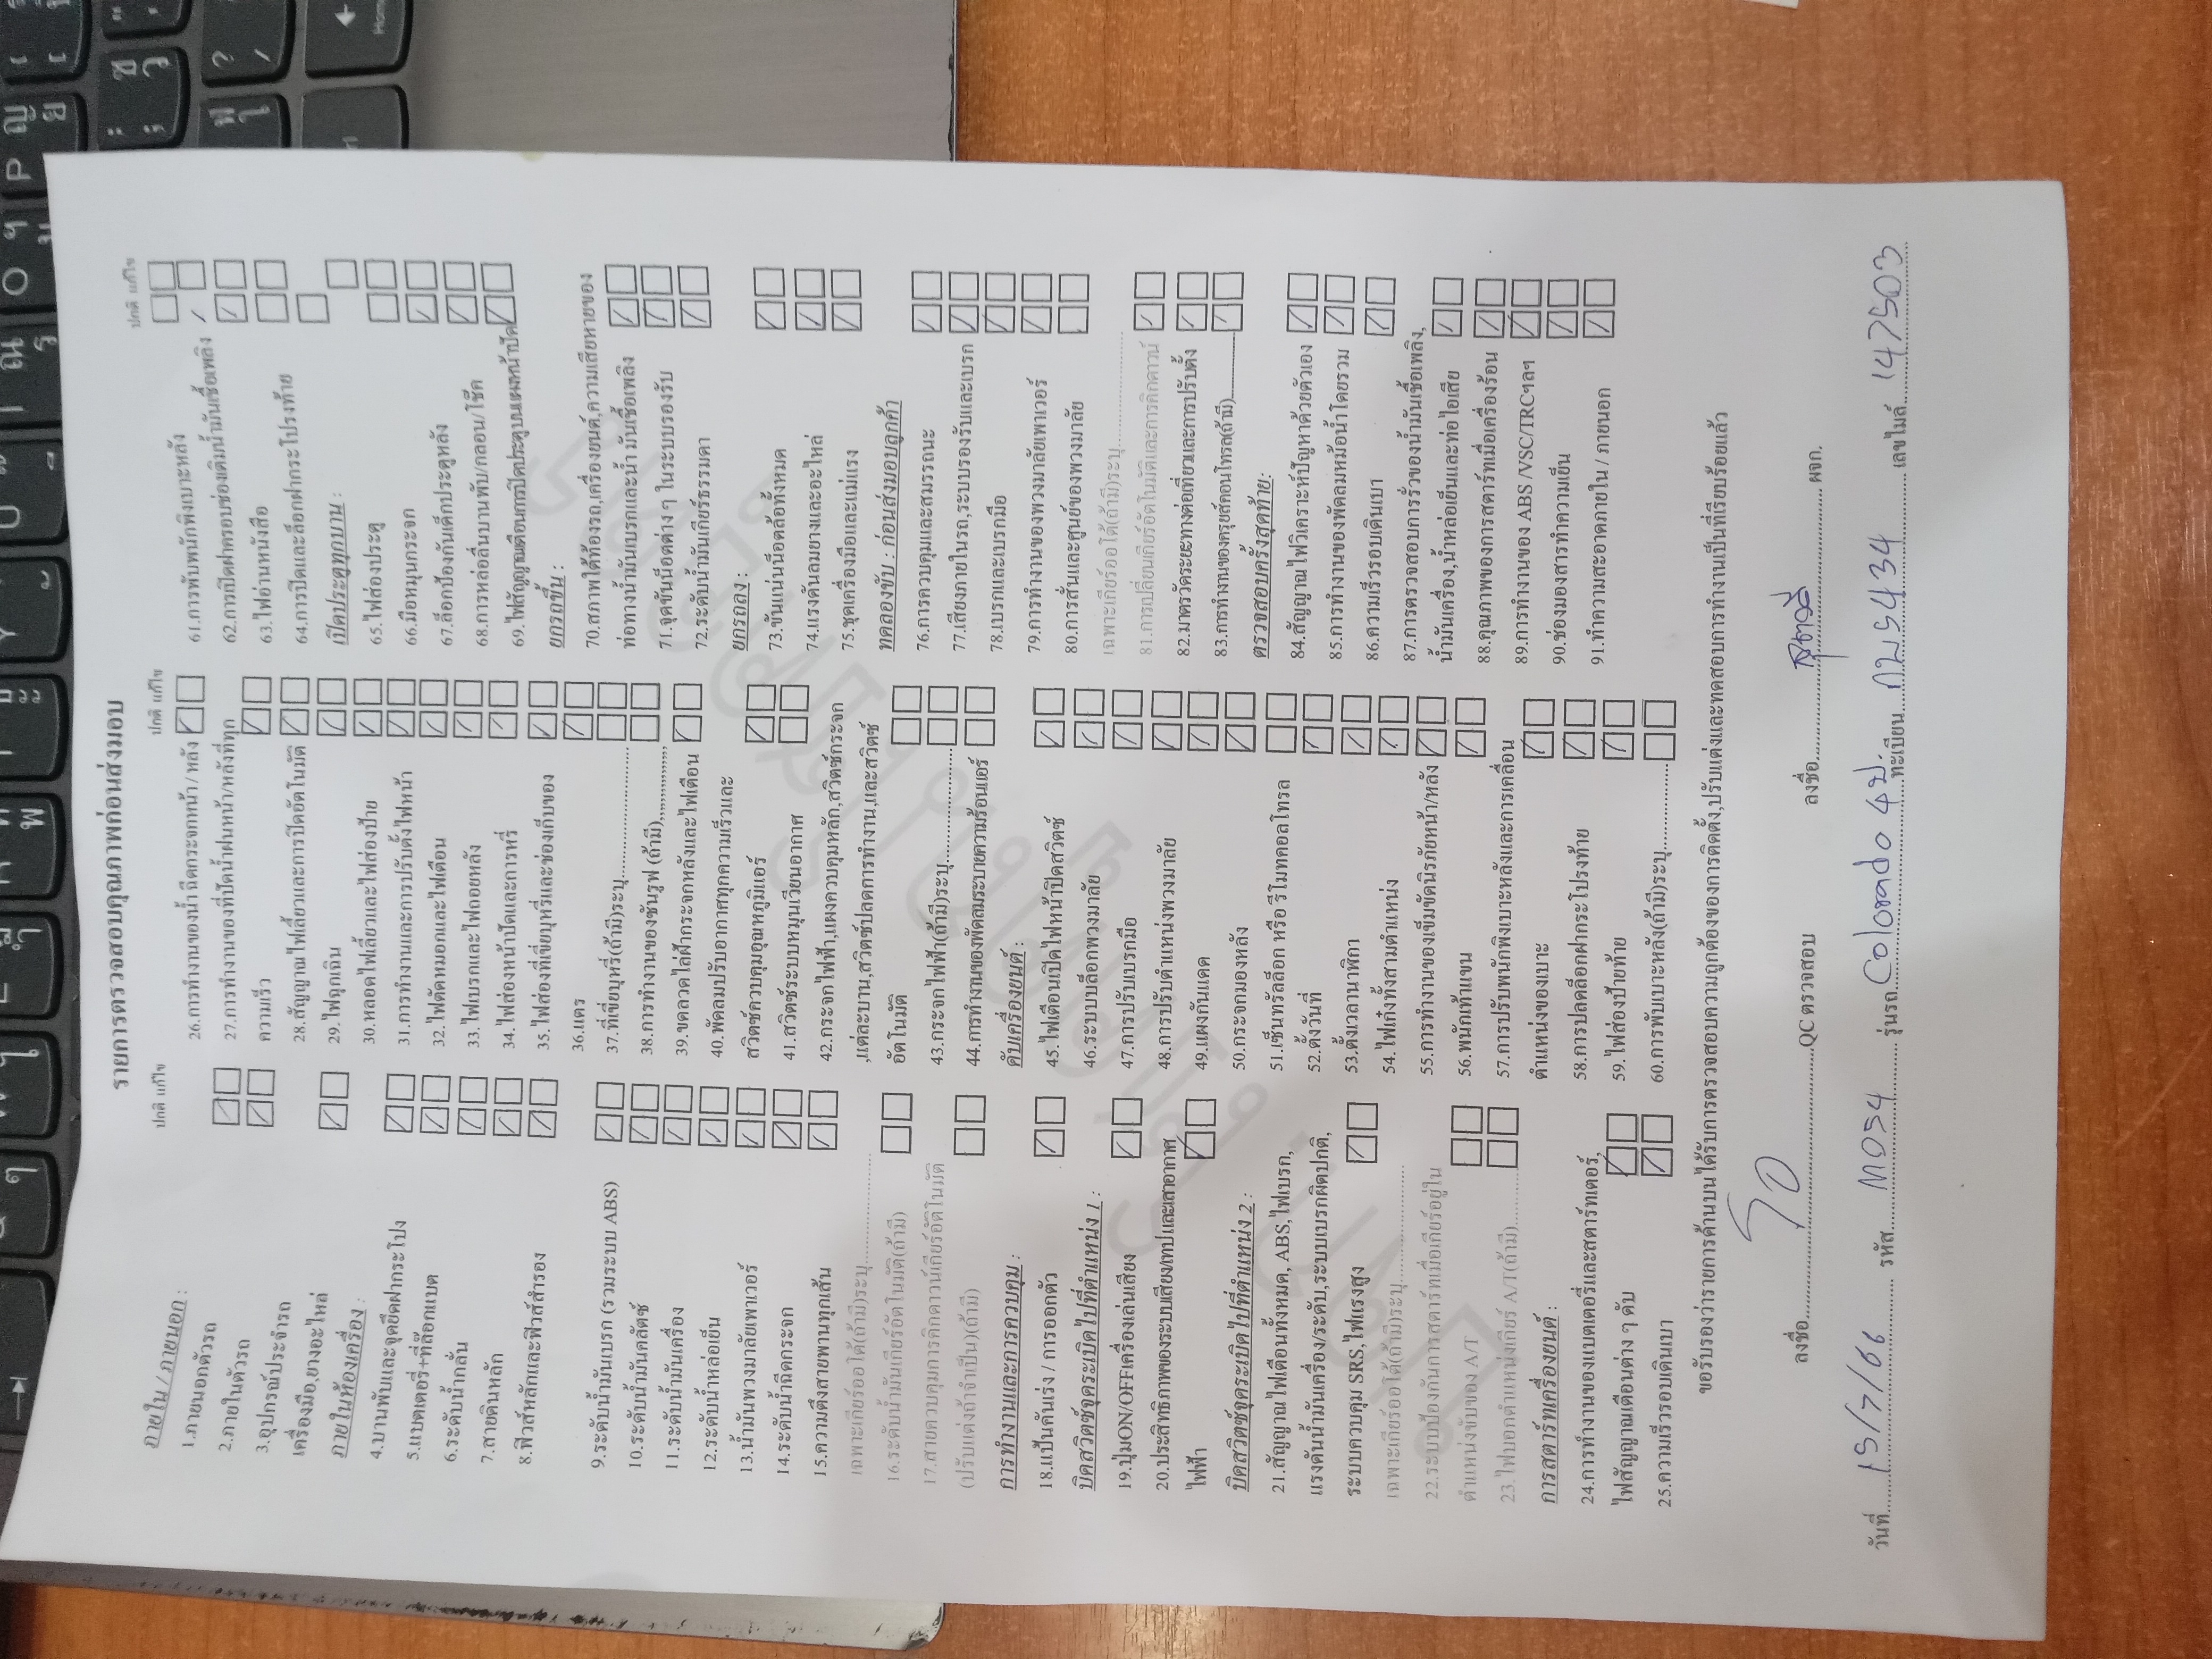 รายการตรวจสอบคุณภาพก่อนส่งมอบ
ปกติ แก้ไข
ภายใน / ภายนอก :
1.ภายนอกตัวรถ
2.ภายในตัวรถ
3.อุปกรณ์ประจำรถ
เครื่องมือ,ยางอะไหล่
ภายในห้องเครื่อง :
4.บานพับและจุดยึดฝากระโปง
5.แบตเตอรี่+ที่ล๊อกแบต
6.ระดับน้ำกลั่น
7.สายดินหลัก
8.ฟิวส์หลักและฟิวส์สำรอง
9.ระดับน้ำมันเบรก (รวมระบบ ABS)
10.ระดับน้ำมันคลัตซ์
11.ระดับน้ำมันเครื่อง
12.ระดับน้ำหล่อเย็น
13.น้ำมันพวงมาลัยเพาเวอร์
14.ระดับน้ำฉีดกระจก
15.ความตึงสายพานทุกเส้น
เฉพาะเกียร์ออโต้(ถ้ามี)ระบุ
16.ระดับน้ำมันเกียร์อัตโนมัติ(ถ้ามี)
17.สายควบคุมการคิกดาวน์เกียร์อัตโนมัติ
(ปรับแต่งถ้าจำเป็น)(ถ้ามี)
การทำงานและการควบคุม :
18.แป้นคันเร่ง / การออกตัว
บิดสวิตช์จุดระเบิดไปที่ตำแหน่ง 1 :
19.ปุ่มON/OFFเครื่องเล่นเสียง
20.ประสิทธิภาพของระบบเสียง/เทปและเสาอากาศ
ไฟฟ้า
บิดสวิตช์จุดระเบิดไปที่ตำแหน่ง 2 :
21.สัญญาณไฟเตือนทั้งหมด, ABS,ไฟเบรก,
แรงดันน้ำมันเครื่อง/ระดับ,ระบบเบรกผิดปกติ,
ระบบควบคุม SRS,ไฟแรงสูง
เฉพาะเกียร์ออโต้(ถ้ามี)ระบุ
22.ระบบป้องกันการสตาร์ทเมื่อเกียร์อยู่ใน
ตำแหน่งขับของ A/T
23.ไฟบอกตำแหน่งเกียร์ A/T(ถ้ามี)
การสตาร์ทเครื่องยนต์ :
24.การทำงานของแบตเตอรี่และสตาร์ทเตอร์,
ไฟสัญญาณเตือนต่าง ๆ ดับ
25.ความเร็วรอบเดินเบา
ปกติ แก้ไข
26.การทำงานของน้ำ ฉีดกระจกหน้า / หลัง
27.การทำงานของที่ปัดน้ำฝนหน้า/หลังที่ทุก
ความเร็ว
28.สัญญาณไฟเลี้ยวและการปิดอัตโนมัติ
29.ไฟฉุกเฉิน
30.หลอดไฟเลี้ยวและไฟส่องป้าย
31.การทำงานและการปรับตั้งไฟหน้า
32.ไฟตัดหมอกและไฟเตือน
33.ไฟเบรกและไฟถอยหลัง
34.ไฟส่องหน้าปัดและการหรี่
35.ไฟส่องที่เขี่ยบุหรี่และช่องเก็บของ
36.แตร
37.ที่เขี่ยบุหรี่(ถ้ามี)ระบุ
38.การทำงานของซันรูฟ (ถ้ามี)
39.ขดลวดไล่ฝ้ากระจกหลังและไฟเตือน
40.พัดลมปรับอากาศทุกความเร็วและ
สวิตช์ควบคุมอุณหภูมิแอร์
41.สวิตช์ระบบหมุนเวียนอากาศ
42.กระจกไฟฟ้า,แผงควบคุมหลัก,สวิตช์กระจก
,แต่ละบาน,สวิตช์ปลดการทำงาน,และสวิตช์
อัตโนมัติ
43.กระจกไฟฟ้า(ถ้ามี)ระบุ
44.การทำงานของพัดลมระบายความร้อนแอร์
ดับเครื่องยนต์ :
45.ไฟเตือนเปิดไฟหน้าปิดสวิตช์
46.ระบบบล็อกพวงมาลัย
47.การปรับเบรกมือ
48.การปรับตำแหน่งพวงมาลัย
49.แผงกันแดด
50.กระจกมองหลัง
51.เซ็นทรัลล็อก หรือ รีโมทคอลโทรล
52.ตั้งวันที่
53.ตั้งเวลานาฬิกา
54.ไฟเก๋งทั้งสามตำแหน่ง
55.การทำงานของเข็มขัดนิรภัยหน้า/หลัง
56.พนักเท้าแขน
57.การปรับพนักพิงเบาะหลังและการเคลื่อน
ตำแหน่งของเบาะ
58.การปลดล็อกฝากระโปรงท้าย
59.ไฟส่องป้ายท้าย
60.การพับเบาะหลัง(ถ้ามี)ระบุ
ปกติ แก้ไข
61.การพับพนักพิงเบาะหลัง
62.การเปิดฝาครอบช่องเติมน้ำมันเชื้อเพลิง
63.ไฟอ่านหนังสือ
64.การปิดและล็อกฝากระโปรงท้าย
เปิดประตูทุกบาน :
65.ไฟส่องประตู
66.มือหมุนกระจก
67.ล็อกป้องกันเด็กประตูหลัง
68.การหล่อลื่นบานพับ/กลอน/โช๊ค
69.ไฟสัญญาณเตือนการปิดประตูบนแผงหน้าปัด
ยกรถขึ้น :
70.สภาพใต้ท้องรถ,เครื่องยนต์,ความเสียหายของ
ท่อทางน้ำมันเบรกและน้ำ มันเชื้อเพลิง
71.จุดขันน็อตต่าง ๆ ในระบบรองรับ
72.ระดับน้ำมันเกียร์ธรรมดา
ยกรถลง :
73.ขันแน่นน็อตล้อทั้งหมด
74.แรงดันลมยางและอะไหล่
75.ชุดเครื่องมือและแม่แรง
ทดลองขับ : ก่อนส่งมอบลูกค้า
76.การควบคุมและสมรรถนะ
77.เสียงภายในรถ,ระบบรองรับและเบรก
78.เบรกและเบรกมือ
79.การทำงานของพวงมาลัยเพาเวอร์
80.การสั่นและศูนย์ของพวงมาลัย
เฉพาะเกียร์ออโต้(ถ้ามี)ระบุ
81.การเปลี่ยนเกียร์อัตโนมัติและการคิกดาวน์
82.มาตรวัดระยะทางต่อเที่ยวและการปรับตั้ง
83.การทำงานของครุยส์คอนโทรล(ถ้ามี)
ตรวจสอบครั้งสุดท้าย:
84.สัญญาณไฟวิเคราะห์ปัญหาด้วยตัวเอง
85.การทำงานของพัดลมหม้อน้ำโดยรวม
86.ความเร็วรอบเดินเบา
87.การตรวจสอบการรั่วของน้ำมันเชื้อเพลิง,
น้ำมันเครื่อง,น้ำหล่อเย็นและท่อไอเสีย
88.คุณภาพของการสตาร์ทเมื่อเครื่องร้อน
89.การทำงานของ ABS /VSC/TRCฯลฯ
90.ช่องมองสารทำความเย็น
91.ทำความสะอาดภายใน / ภายนอก
ขอรับรองว่ารายการด้านบนได้รับการตรวจสอบความถูกต้องของการติดตั้ง,ปรับแต่งและทดสอบการทำงานเป็นที่เรียบร้อยแล้ว
ลงชื่อ QC ตรวจสอบ ลงชื่อ ผจก.
วันที่ 15/7/66 รหัส M034 รุ่นรถ Colorado 4ป. ทะเบียน กบร434 เลขไมล์ 147503